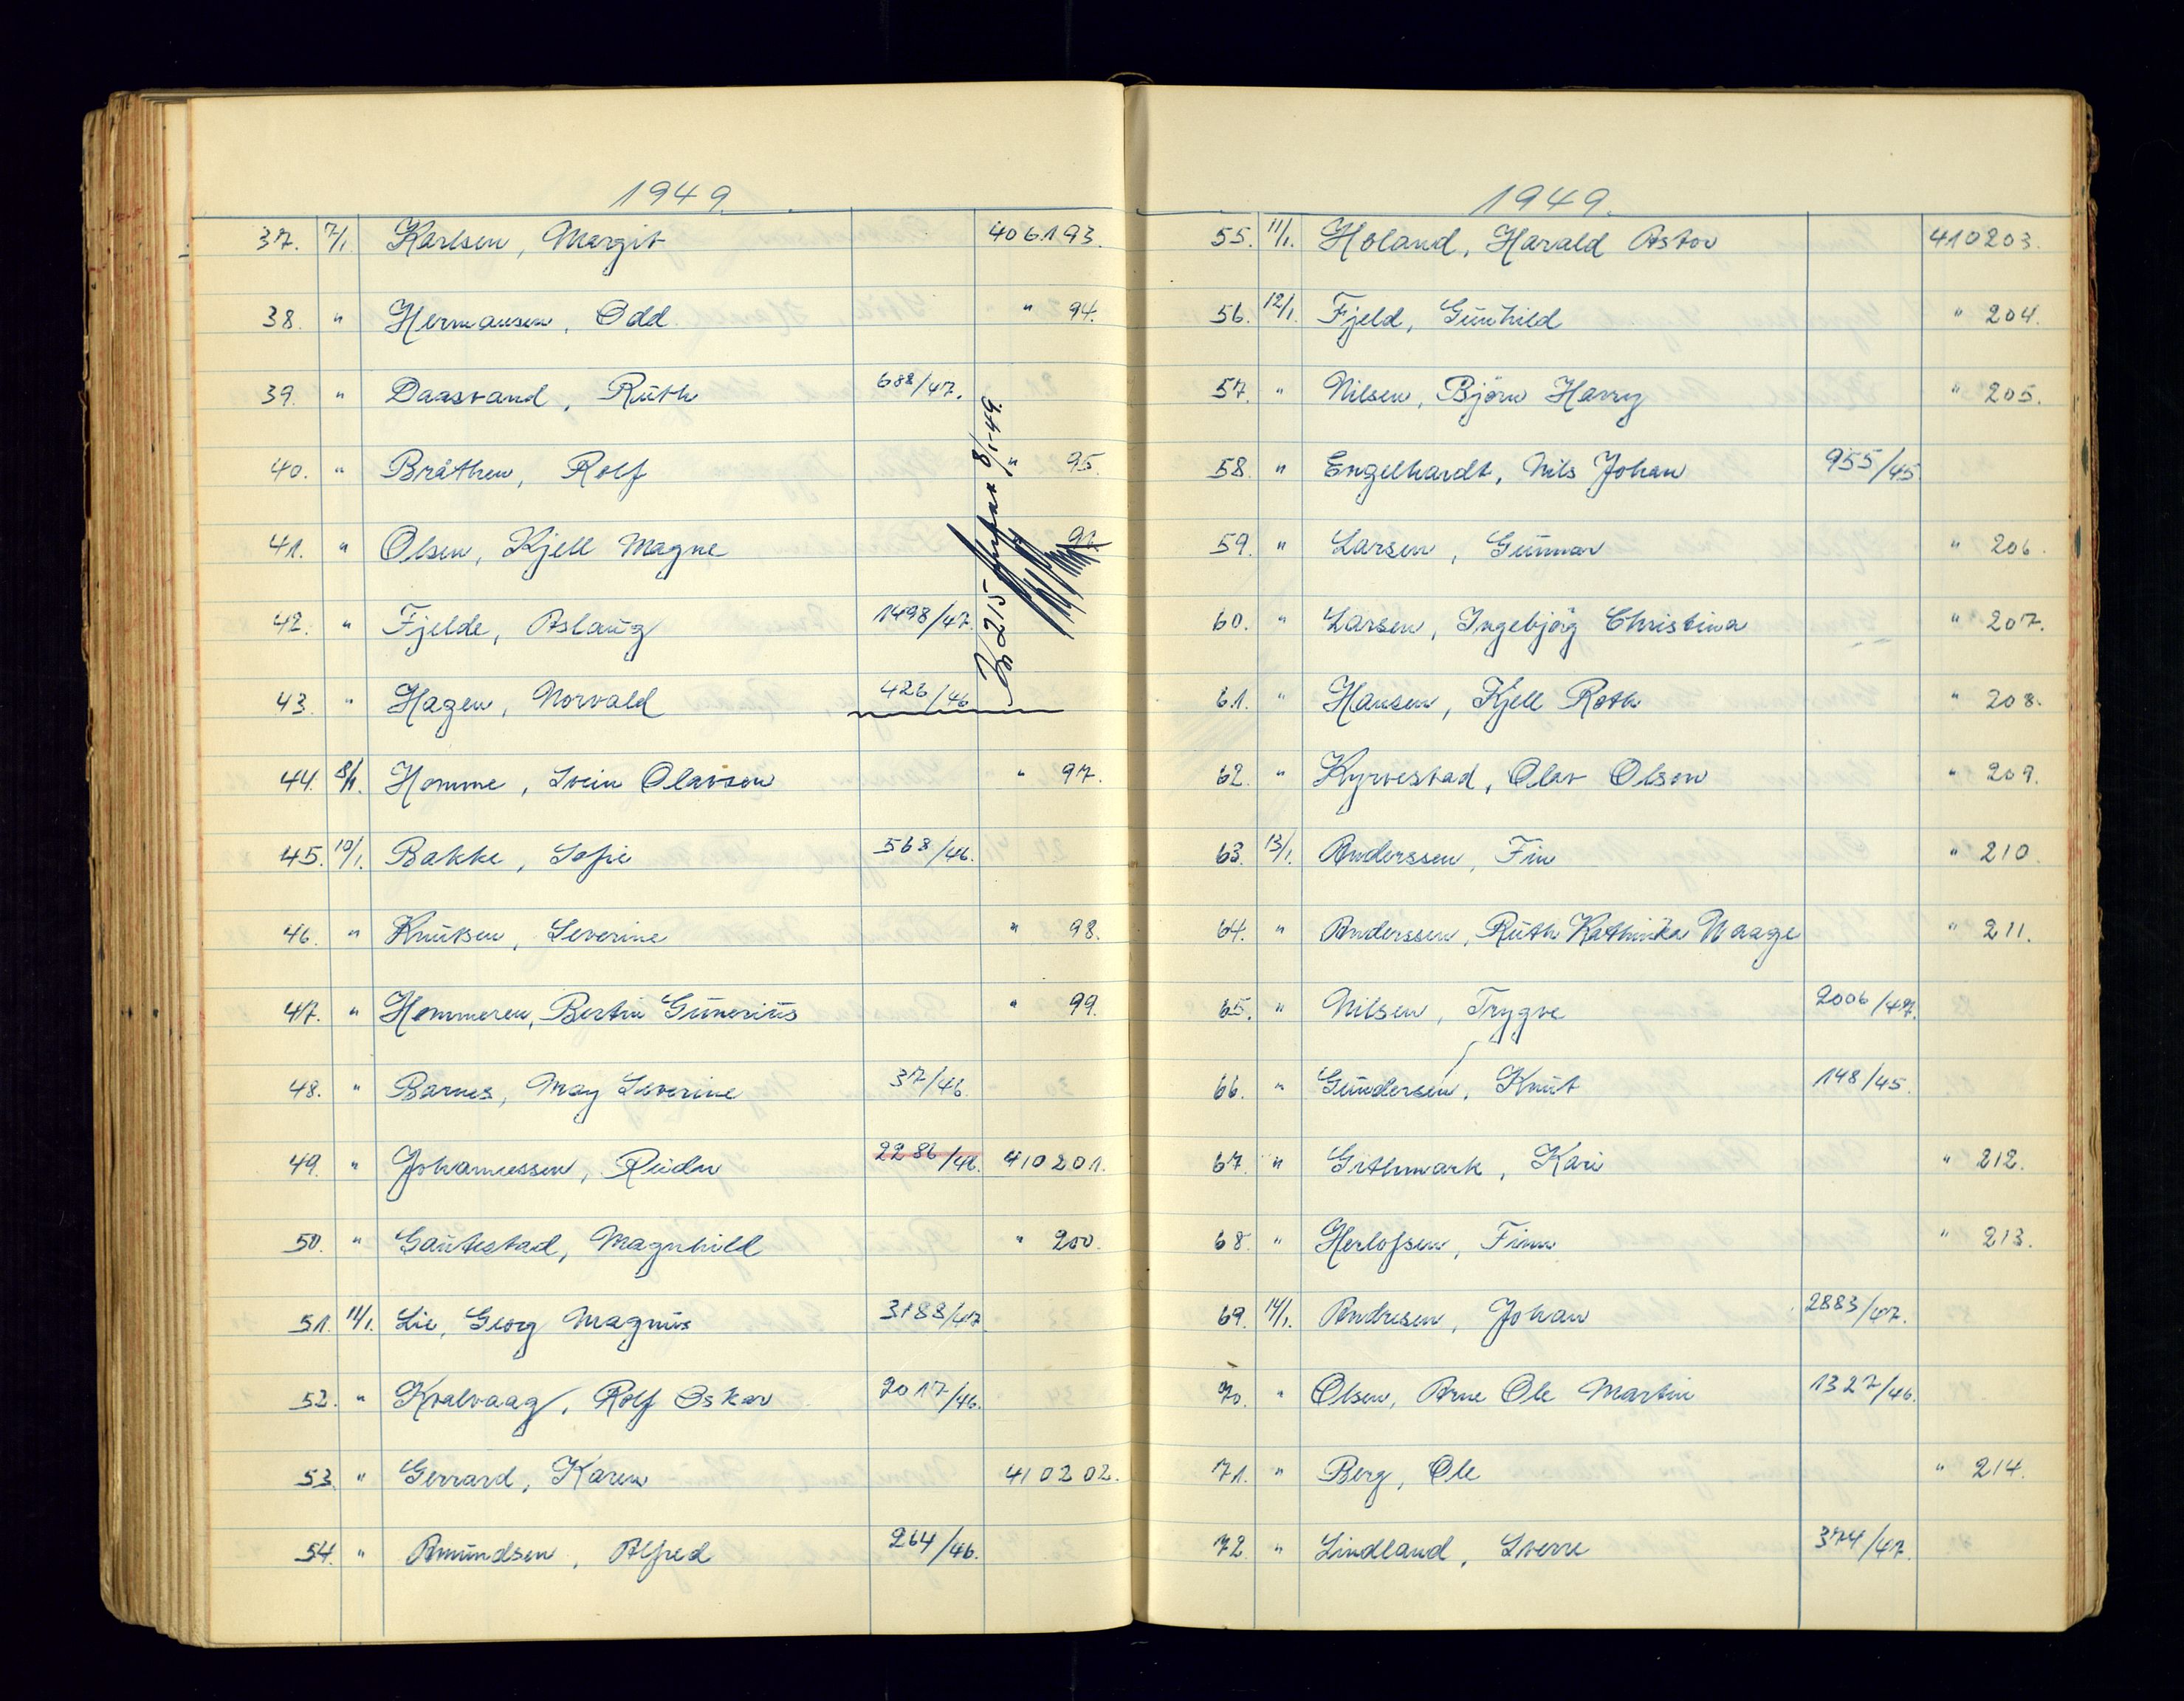 1949.
37. 7/1. Karlsen, Margit 406193.
38. " Hermansen, Odd " 94.
39. " Daasvand, Ruth 688/47.
40. " Bråthen, Rolf " 95.
41. " Olsen, Kjell Magne 96.
42. " Fjelde, Aslaug 1498/47.
43. " Hagen, Norvald 426/46
215 8/1-49.
44. 8/1. Homme, Svein Olavson " 97.
45. 10/1. Bakke, Sofie 568/46.
46. " Knutsen, Severine " 98.
47. " Hommeren, Bertin Gunerius " 99.
48. " Barnes, May Severine 37/46.
49. " Johannessen, Reidu 2286/46. 410201.
50. " Gautestad, Magnhild " 200.
51. 11/1. Lie, Georg Magnus 3188/47.
52. " Kvalvaag, Rolf Oskar 2017/46.
53. " Gerrard, Karen 410202.
54. " Amundsen, Alfred 264/46.
1949.
55. 11/1. Holand, Harald Astor 410203.
56. 12/1. Fjeld, Gunhild " 204.
57. " Nilsen, Björn Harry " 205.
58. " Engelhardt, Nils Johan 955/45
59. " Larsen, Gunnar " 206.
60. " Larsen, Ingebjörg Christina " 207.
61. " Hansen, Kjell Roth " 208.
62. " Kyrvestad, Olav Olson " 209.
63. 13/1. Anderssen, Fin " 210.
64. " Anderssen, Ruth Kathinka Naage " 211.
65. " Nilsen, Trygve 2006/47.
66. " Gundersen, Knut 148/45.
67. " Grthmark, Kari " 212.
68. " Herlofsen, Finn " 213.
69. 14/1. Andresen, Johan 2883/47.
70. " Olsen, Arne Ole Martin 1327/46.
71. " Berg, Ole " 214.
72. " Lindland, Sverre 374/47.